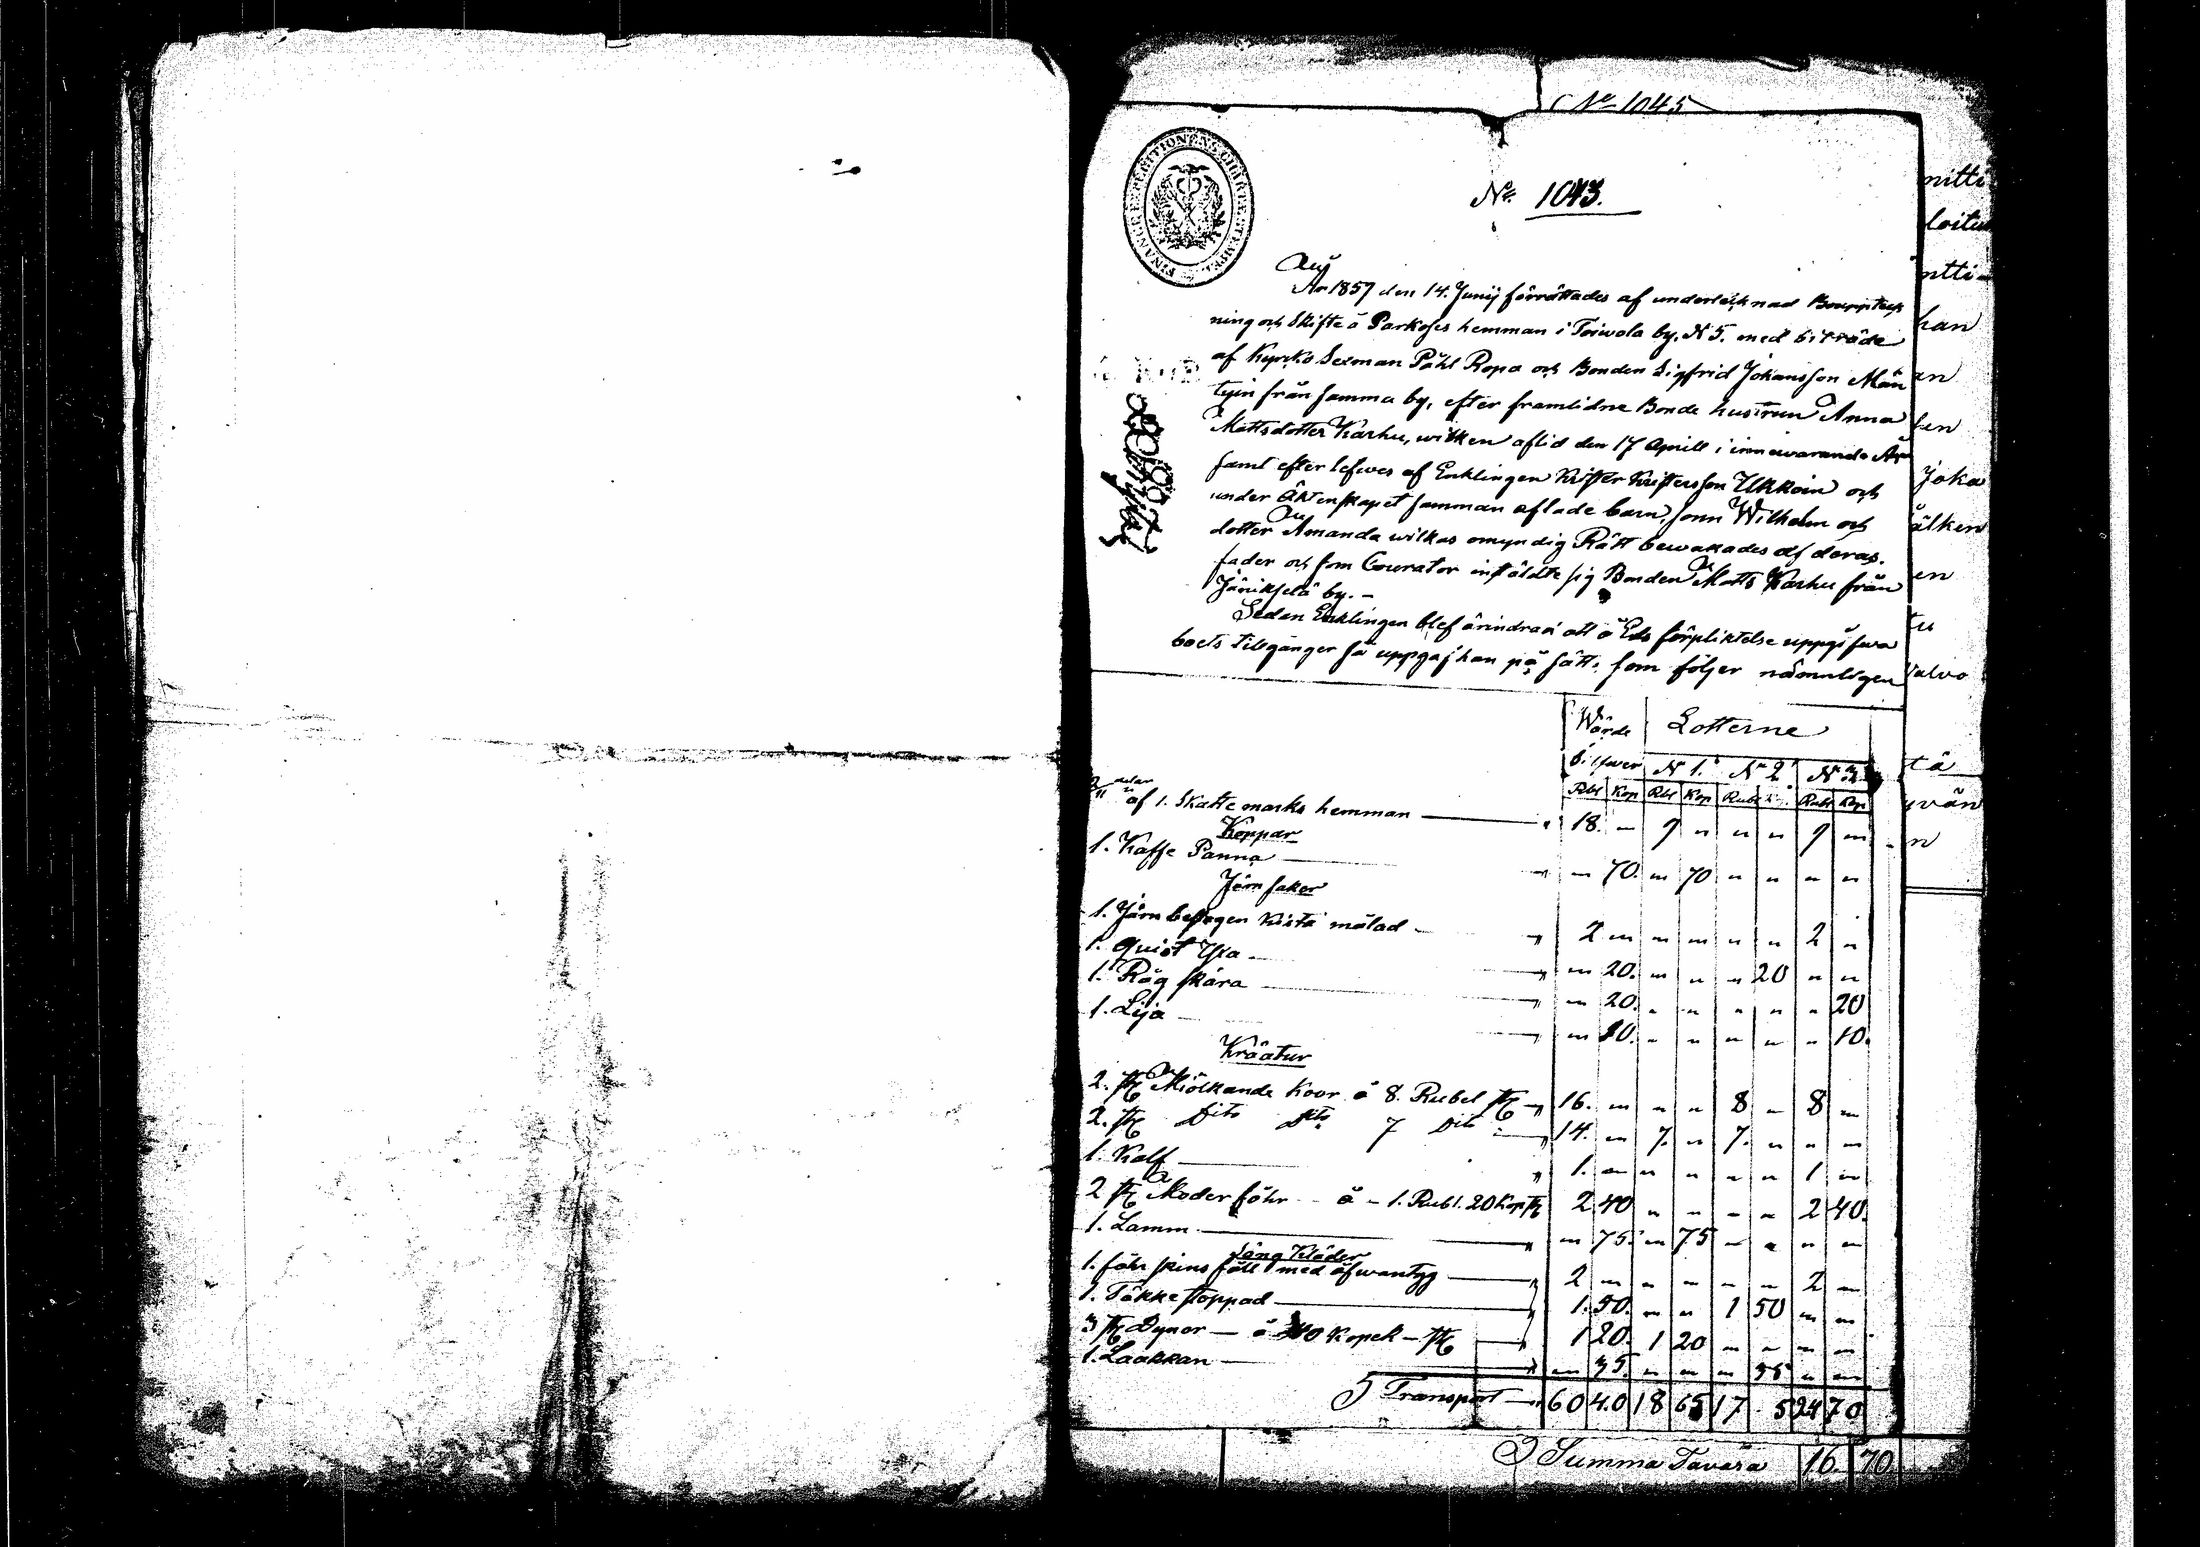 No 1045
No 1043.
FINANCE EXPEDITIONENS CHARTÆ STEMPEL
År 1857 den 14. Junij förrättades af undertecknad Bouppteck
ning och Skifte å Parkojes hemman i Toiwola by. N 5. med biträde
af Kyrko Sexman Påhl Ropa och Bonden Sigfrid Johansson Män
tyin från samma by, efter framlidne Bonde hustrun Anna
Mattsdotter Karhu, wilken aflid den 17 Aprill i innewarande År
samt efter lefwes af Enklingen Krister Kristersson Ukkoin och
under äktenskapet samman aflade barn, sonn Wilhelm och
dotter Amanda wilkas omyndig Rätt bewakades af deras.
fader och som Courator instäldte sig Bonden Matts Karhu från
by. -
Sedan Enklingen blef ärindrad att å Eds förpliktelse uppgifwa
boets tillgånger så uppgaf han på sätt: som följer nämnligen
Wärde Lotterne
Silfwer N 1. N 2 N 3
Rbl Kop Rbl Kop Rubl Rubl Kop
af 1. Skatte marks hemman 18. " 9 " " " 9 "
Koppar
1. Kaffe Panna " 70. " 70 " " " "
Järn saker
1. Järn beslagen kista målad 2 " " " " " 2 "
1. Quist Yxa " 20. " " " 20 " "
1. Råg skära " 20. " " " " " 20
1. Lija " 10. " " " " " 10.
Kräatur
2. st Miölkande koor å 8. Rubel st 16. " " " 8 " 8 "
2. st Dito Dto 7 Dito 14. " 7. " 7. " " "
1. Kalf 1. " " " " " 1 "
2 st Moder fåhr å 1. Rubl. 20 Kop st 2 40 " " " " 2 40.
1. Lamm " 75. " 75 " " " "
Säng Kläder
1. fåhr skins fäll med åfwantyg 2 " " " " " 2 "
1. Täkke stoppad 1. 50. " " 1 50 " "
3 st Dynor å 40 Kopek st 1 20. 1 20 " " " "
1. Laakkan " 35. " " " 35 " "
Transport 60 40 18 65 17 5 24 70
Summa Tavara 16. 70
nitti
han
an
Joka
älken
en
tä
yvän
n